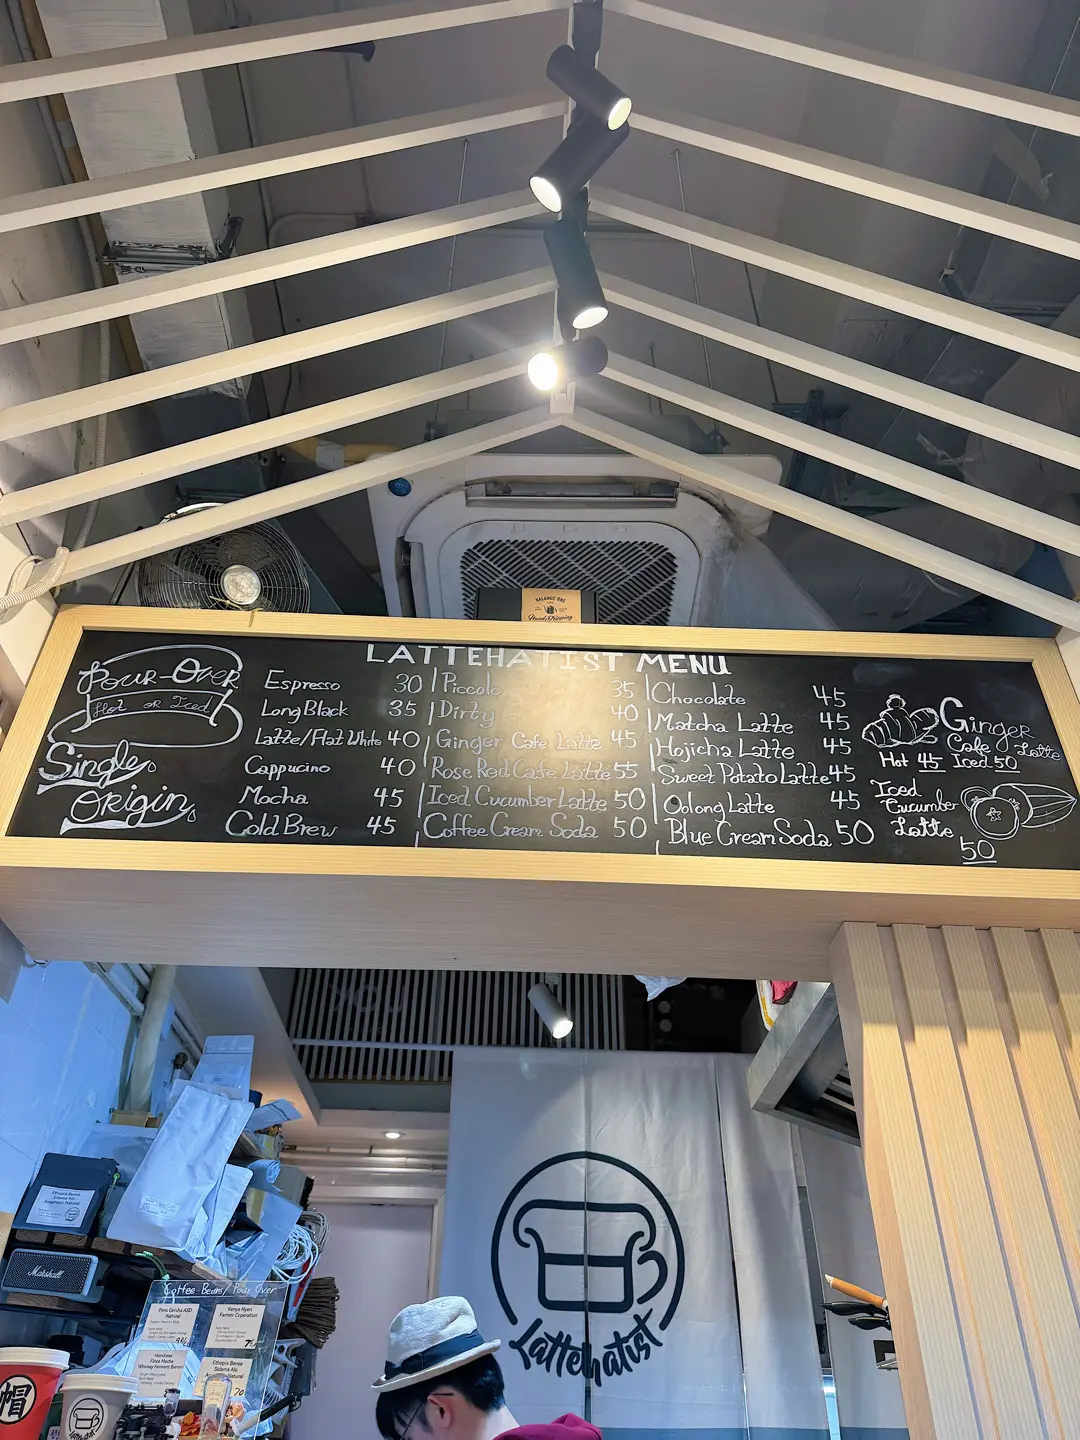 BALANCE ONE
LATTEHATIST MENU
Pour-Over
Hot or Iced
Single
Origin
Espresso 30
Long Black 35
Latte/Flat White 40
Cappucino 40
Mocha 45
Cold Brew 45
Piccolo 35
Dirty 40
Ginger Cafe Latte 45
Rose Red Cafe Latte 55
Iced Cucumber Latte 50
Coffee Cream Soda 50
Chocolate 45
Matcha Latte 45
Hojicha Latte 45
Sweet Potato Latte 45
Oolong Latte 45
Blue Cream Soda 50
Ginger
Cafe Latte
Hot 45 Iced 50
Iced
Cucumber
Latte
50
YOU
Ethiopia Bensa
Marshall
Coffee Beans/Pour Over
Peru Geisha ASD
Natural
Kenya Nyeri
Honduras
Ethiopia Bensa
帽
Lattehatist